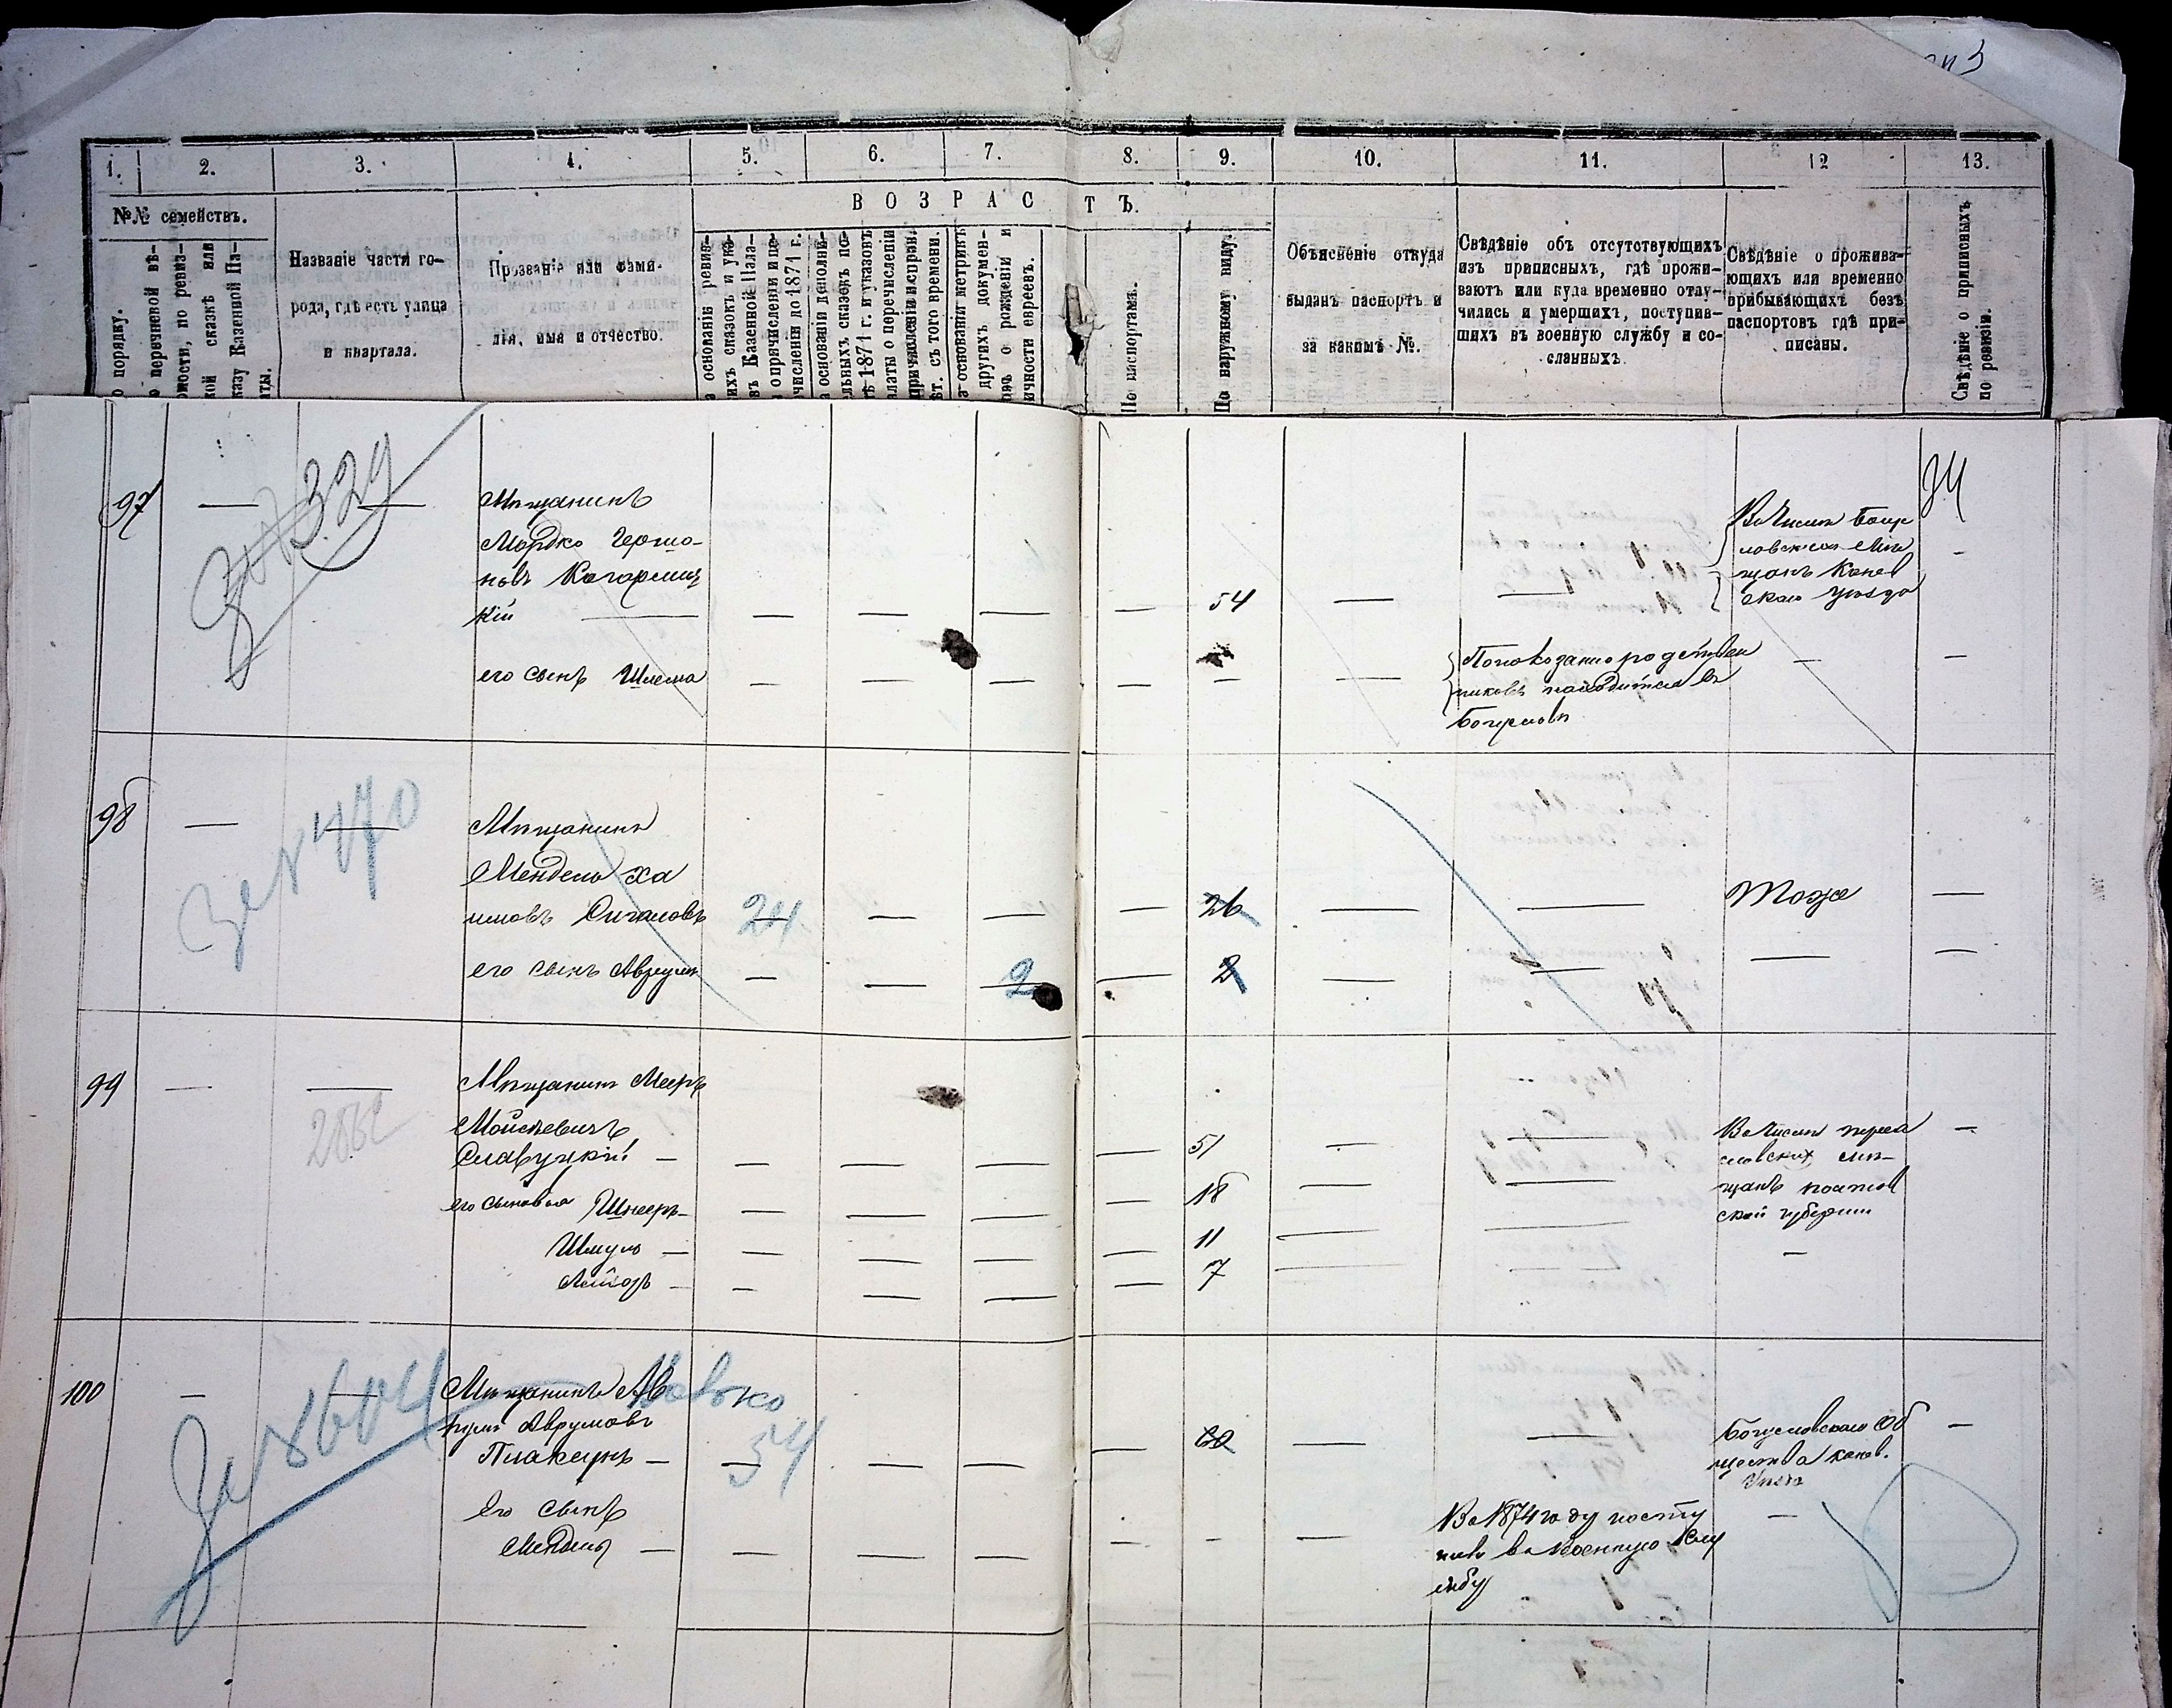 1. 2. 3. 4. 5. 6. 7. 8. 9. 10. 11. 12 13.
№№ семействъ.
В О З Р А С Т Ъ.
о порядку.
о перечневой вѣ-
мости, по ревиз-
кой сказкѣ или
казу Казенной Па-
аты.
Названіе части го-
рода, гдѣ есть улица
и квартала.
Прозваніе или фами-
лія, имя и отчество.
а основаніи ревиз-
ихъ сказокъ и ука-
въ Казенной Пала-
о причисленіи и пе-
численіи до 1871 г.
а основаніи дополни-
льныхъ сказокъ по-
ѣ 1871 г. и указовъ
латы о перечисленіи
причисленіи и исправ.
ѣт. съ того времени.
а основаніи метрикъ
другихъ докумен-
овъ о рожденіи и
ичности евреевъ.
По паспортамъ.
По наружному виду.
Объясненіе откуда
выданъ паспортъ и
за какимъ №.
Свѣдѣніе объ отсутствующихъ
изъ приписныхъ, гдѣ прожи-
ваютъ или куда временно отлу-
чились и умершихъ, поступив-
шихъ въ военную службу и со-
сланныхъ.
Свѣдѣніе о прожива-
ющихъ или временно
прибывающихъ безъ
паспортовъ гдѣ при-
писаны.
Свѣдѣніе о приписныхъ
по ревизіи.
97 — —
329
Мѣщанинъ
Мордко Гершо-
новъ Кагарлиц
кій — — — — — 54 — —
Въ числѣ Богу
славскихъ мѣ
щанъ Канев
скаго уѣзда
—
его сынъ Шлема — — — — — —
По показанію родствен
никовъ находится въ
Богуславѣ
— —
98 — —
За № 470
Мѣщанинъ
Мендель Ха
имовъ Сигаловъ 24 — — — 26 — — Тоже —
его сынъ Аврумъ — — 2 — 2 — — — —
99 — —
Мѣщанинъ Мееръ
Мойсѣевичъ
Славуцкій — — — — — 51 — —
Въ числѣ переа
славскихъ мѣ-
щанъ полтав
ской губерніи
—
его сыновья Шнееръ — — — — — 18 — —
Шмуль — — — — — 11 — — —
— — — — — 7 — —
100 — —
За № 8604
Мѣщанинъ Ав
румъ Аврумовъ
Плаксунъ — — 54 — — — 60 — —
Богуславскаго Об
щества канев.
уѣзда
—
Его сынъ
Мендель — — — — — — —
Въ 1874 году посту
пилъ въ военную слу
жбу
—